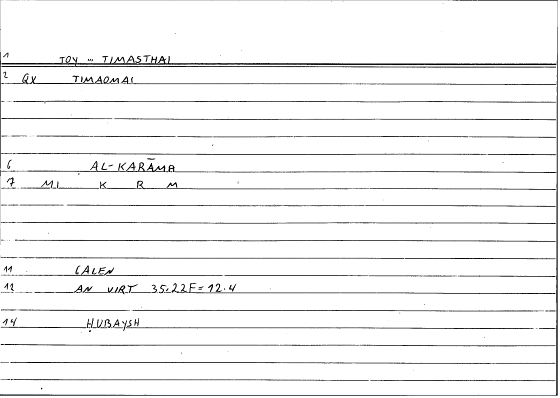 1 TOY ... TIMASTHAI
2 GX TIMAOMAI
6 AL-KARĀMA
7 MI K R M
11 GALEN
12 AN VIRT 35.22F=12.4
14 ḤUBAYSH